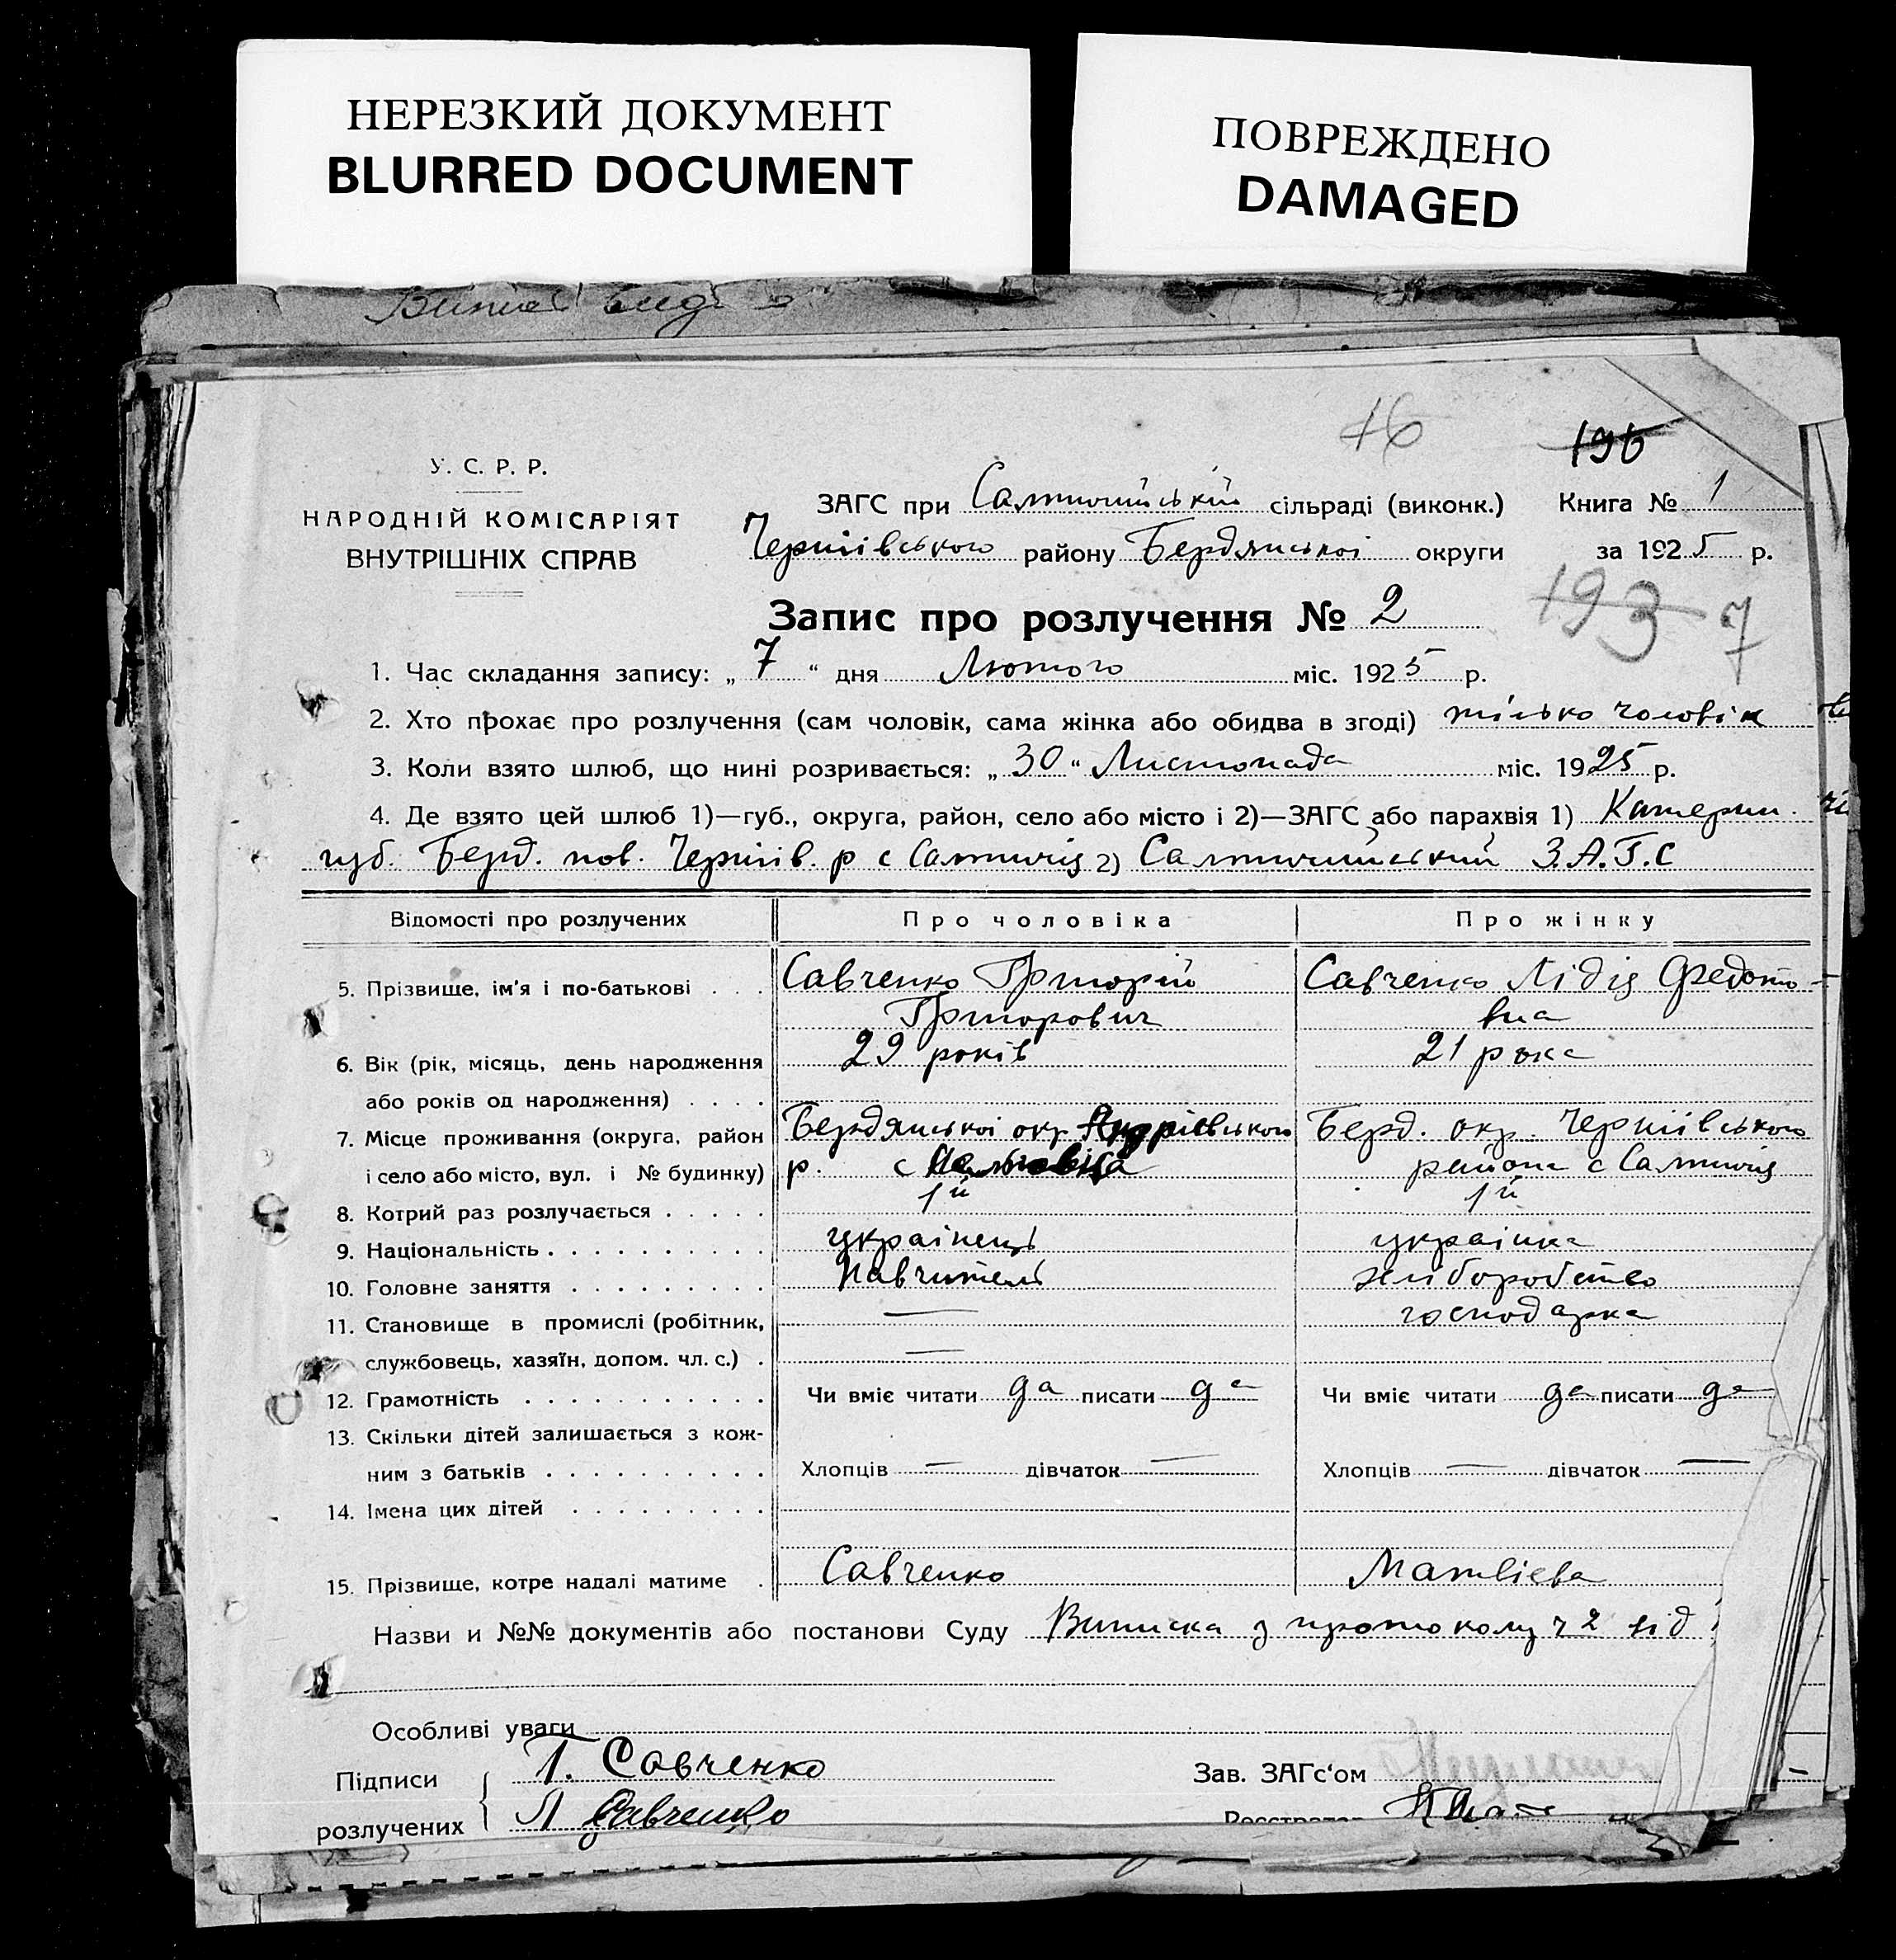 НЕРЕЗКИЙ ДОКУМЕНТ
BLURRED DOCUMENT
ПОВРЕЖДЕНО
DAMAGED
16
196
У. С. Р. Р.
НАРОДНІЙ КОМІСАРІЯТ
ВНУТРІШНІХ СПРАВ
ЗАГС при Салтичийській сільраді (виконк.) Книга № 1
Чернігівського району Бердянської округи за 1925 р.
Запис про розлучення № 2
193 7
1. Час складання запису: „ 7 “ дня Лютого міс. 1925 р.
2. Хто прохає про розлучення (сам чоловік, сама жінка або обидва в згоді) тілько чоловік
3. Коли взято шлюб, що нині розривається: „ 30 “ Листопада міс. 1925 р.
4. Де взято цей шлюб 1)—губ., округа, район, село або місто і 2)—ЗАГС або парахвія 1) Катерин.
губ. Берд. пов. Черніів. р с Салтичія 2) Салтичийський З.А.Г.С
Відомості про розлучених Про чоловіка Про жінку
5. Прізвище, ім'я і по-батькові . . . Савченко Григорій Савченко Лідія Федото-
Григорович вна
6. Вік (рік, місяць, день народження 29 років 21 рока
або років од народження) . . . .
7. Місце проживання (округа, район Бердянської окр. Андріівського Берд. окр. Черніівського
і село або місто, вул. і № будинку) р. с района с Салтичія
8. Котрий раз розлучається . . . . . 1й 1й
9. Національність . . . . . . . . . . українець українка
10. Головне заняття . . . . . . . . . Навчитель хліборобство
11. Становище в промислі (робітник, — господарка
службовець, хазяїн, допом. чл. с.) . —
12. Грамотність . . . . . . . . . . . Чи вміє читати да писати да Чи вміє читати да писати да
13. Скільки дітей залишається з кож-
ним з батьків . . . . . . . . . . Хлопців — дівчаток — Хлопців — дівчаток —
14. Імена цих дітей . . . . . . . . .
15. Прізвище, котре надалі матиме . Савченко Матвієва
Назви и №№ документів або постанови Суду Виписка з протоколу ч 2 від
Особливі уваги
Підписи Г. Савченко Зав. ЗАГс'ом
розлучених Л Савченко Реєстратор